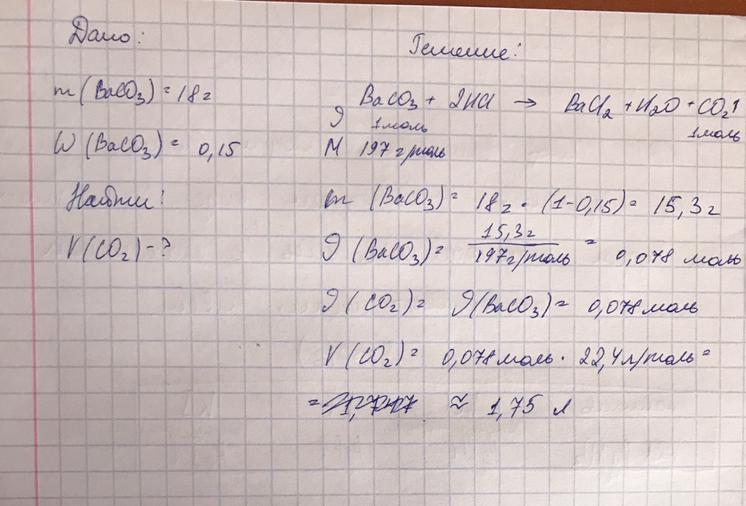 Дано:
m (BaCO3) = 18 г
W (BaCO3) = 0,15
Найти:
V (CO2) - ?
Решение:
BaCO3 + 2HCl → BaCl2 + H2O + CO2↑
υ 1моль 1моль
M 197 г/моль
m (BaCO3) = 18 г · (1-0,15) = 15,3 г
υ (BaCO3) = 15,3 г / 197 г/моль = 0,078 моль
υ (CO2) = υ (BaCO3) = 0,078 моль
V (CO2) = 0,078 моль · 22,4 л/моль =
= ≈ 1,75 л